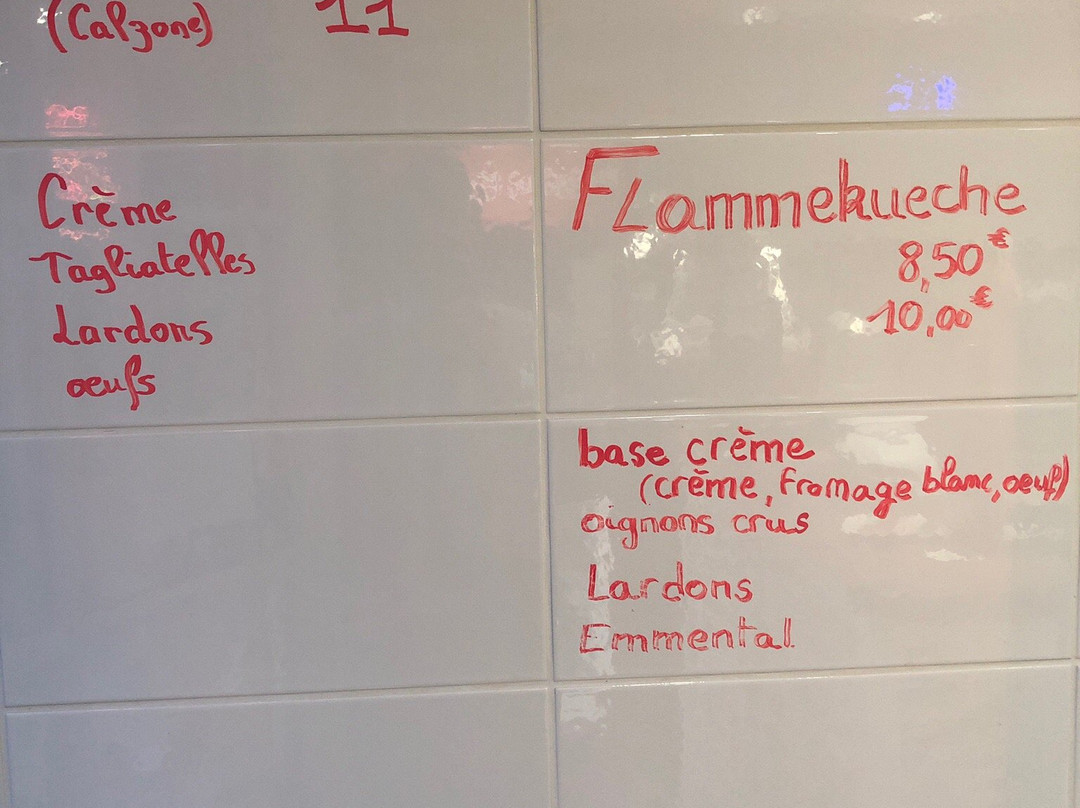 (Calzone) 11
Crème
Tagliatelles
Lardons
œufs
FLammekueche
8,50€
10,00€
base crème
(crème, fromage blanc, œuf)
oignons crus
Lardons
Emmental